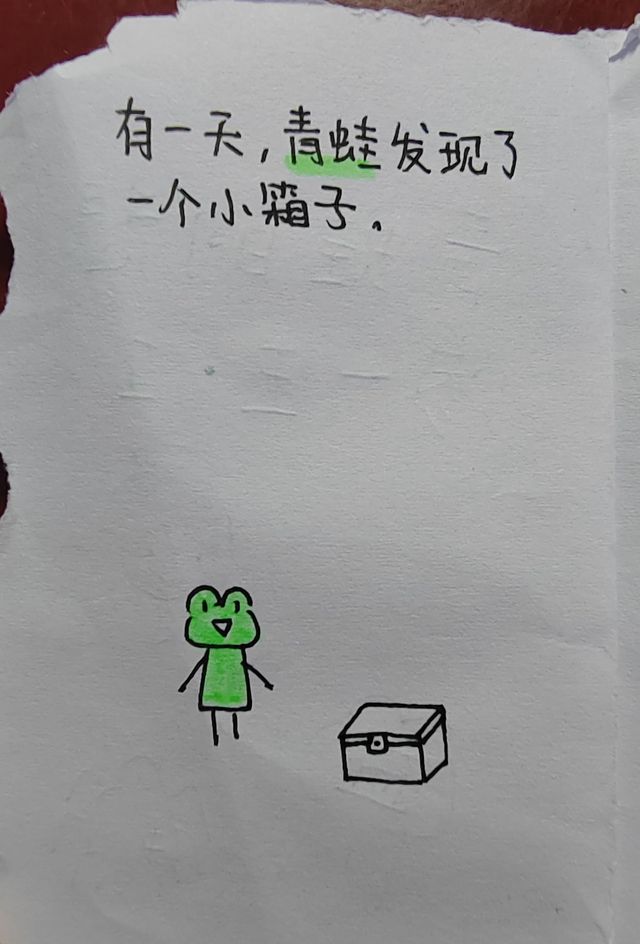 有一天，青蛙发现了
一个小箱子。